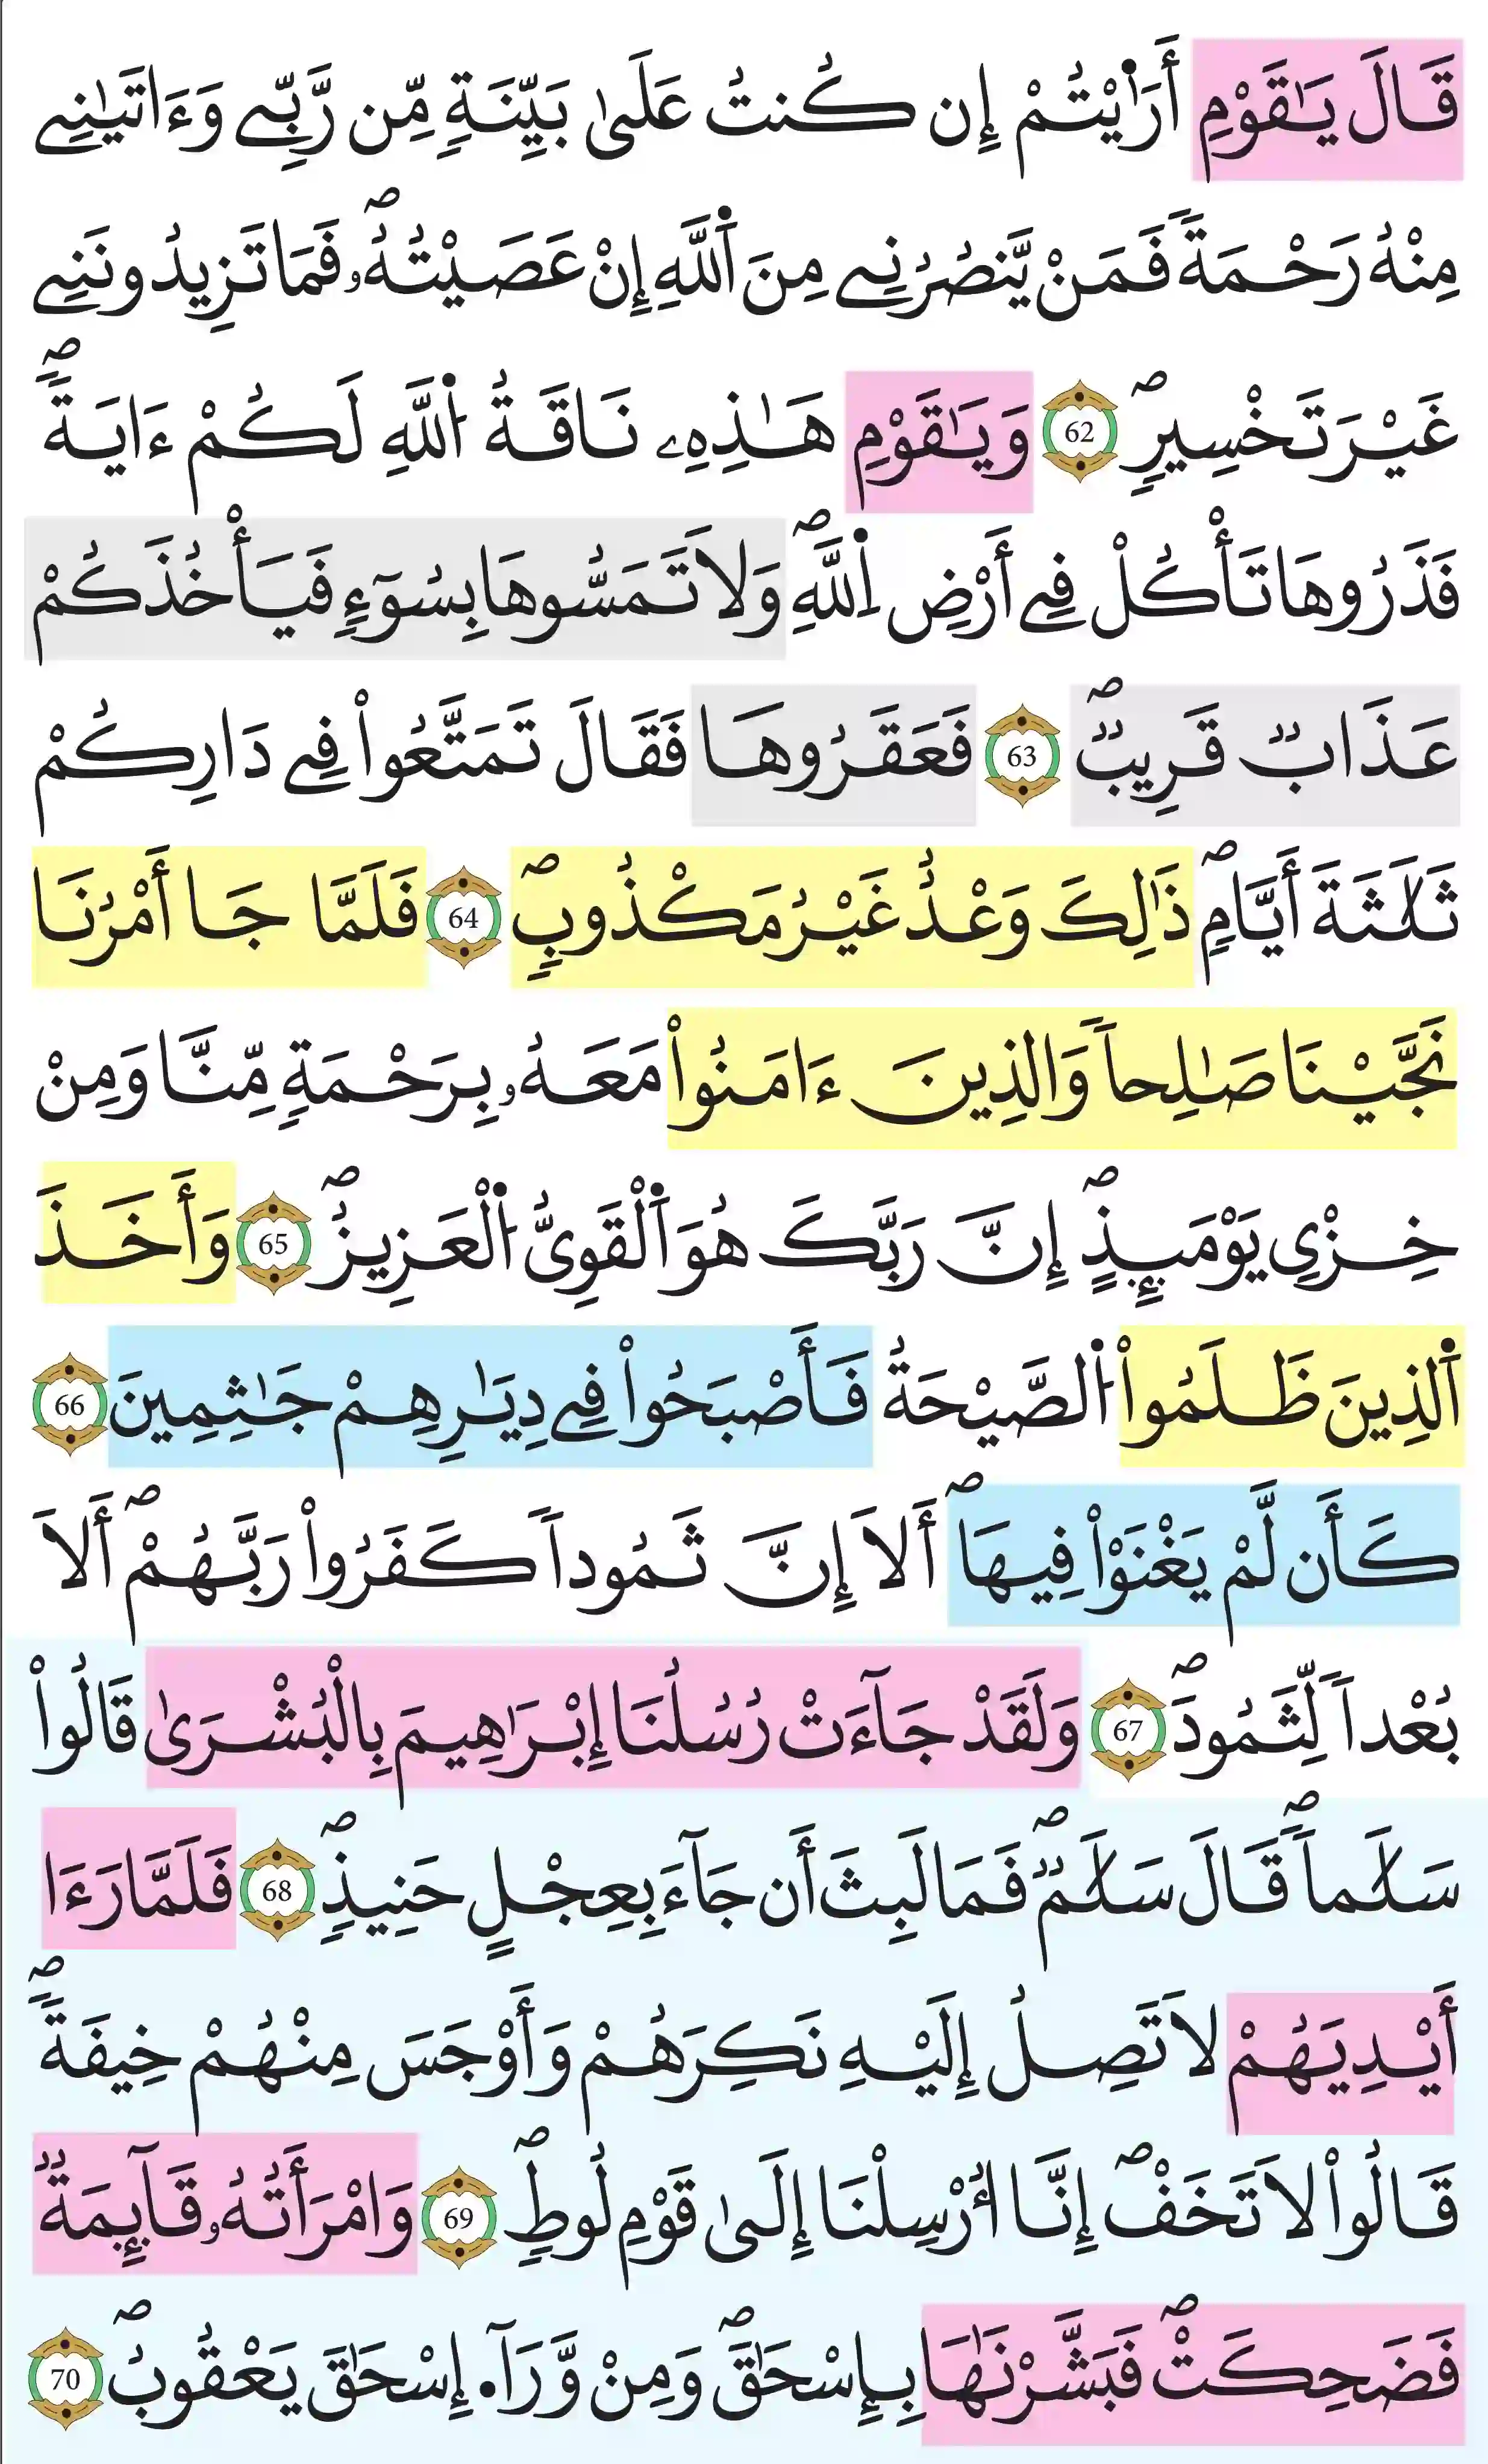 قَالَ يَٰقَوْمِ أَرَٰٓيْتُمْ إِن كُنتُ عَلَىٰ بَيِّنَةٍ مِّن رَّبِّے وَءَاتَيٰنِے
مِنْهُ رَحْمَةً فَمَنْ يَّنصُرُنِے مِنَ اَ۬للَّهِ إِنْ عَصَيْتُهُۥۖ فَمَا تَزِيدُونَنِے
غَيْرَ تَخْسِيرٍۖ 62 وَيَٰقَوْمِ هَٰذِهِۦ نَاقَةُ اُ۬للَّهِ لَكُمْ ءَايَةٗۖ
فَذَرُوهَا تَأْكُلْ فِےٓ أَرْضِ اِ۬للَّهِۖ وَلَا تَمَسُّوهَا بِسُوٓءٍ فَيَأْخُذَكُمْ
عَذَابٌ قَرِيبٌۖ 63 فَعَقَرُوهَا فَقَالَ تَمَتَّعُواْ فِے دَارِكُمْ
ثَلَٰثَةَ أَيَّامٍۖ ذَٰلِكَ وَعْدٌ غَيْرُ مَكْذُوبٍۖ 64 فَلَمَّا جَا أَمْرُنَا
نَجَّيْنَا صَٰلِحاً وَالذِينَ ءَامَنُواْ مَعَهُۥ بِرَحْمَةٍ مِّنَّا وَمِنْ
خِزْيِ يَوْمَئِذٍۖ إِنَّ رَبَّكَ هُوَ اَ۬لْقَوِيُّ اُ۬لْعَزِيزُۖ 65 وَأَخَذَ
اَ۬لذِينَ ظَلَمُواْ اُ۬لصَّيْحَةُ فَأَصْبَحُواْ فِے دِيَٰرِهِمْ جَٰثِمِينَ 66
كَأَن لَّمْ يَغْنَوْاْ فِيهَاۖ أَلَا إِنَّ ثَمُوداً كَفَرُواْ رَبَّهُمْۖ أَلَا
بُعْداً لِّثَمُودَۖ 67 وَلَقَدْ جَآءَتْ رُسُلُنَا إِبْرَٰهِيمَ بِالْبُشْرَىٰ قَالُواْ
سَلَٰماًۖ قَالَ سَلَٰمٌۖ فَمَا لَبِثَ أَن جَآءَ بِعِجْلٍ حَنِيذٍۖ 68 فَلَمَّا رَءَا
أَيْدِيَهُمْ لَا تَصِلُ إِلَيْهِ نَكِرَهُمْ وَأَوْجَسَ مِنْهُمْ خِيفَةٗۖ
قَالُواْ لَا تَخَفْۖ إِنَّا أُرْسِلْنَا إِلَىٰ قَوْمِ لُوطٍۖ 69 وَامْرَأَتُهُۥ قَآئِمَةٌ
فَضَحِكَتْۖ فَبَشَّرْنَٰهَا بِإِسْحَٰقَۖ وَمِنْ وَّرَآءِ إِسْحَٰقَ يَعْقُوبُۖ 70